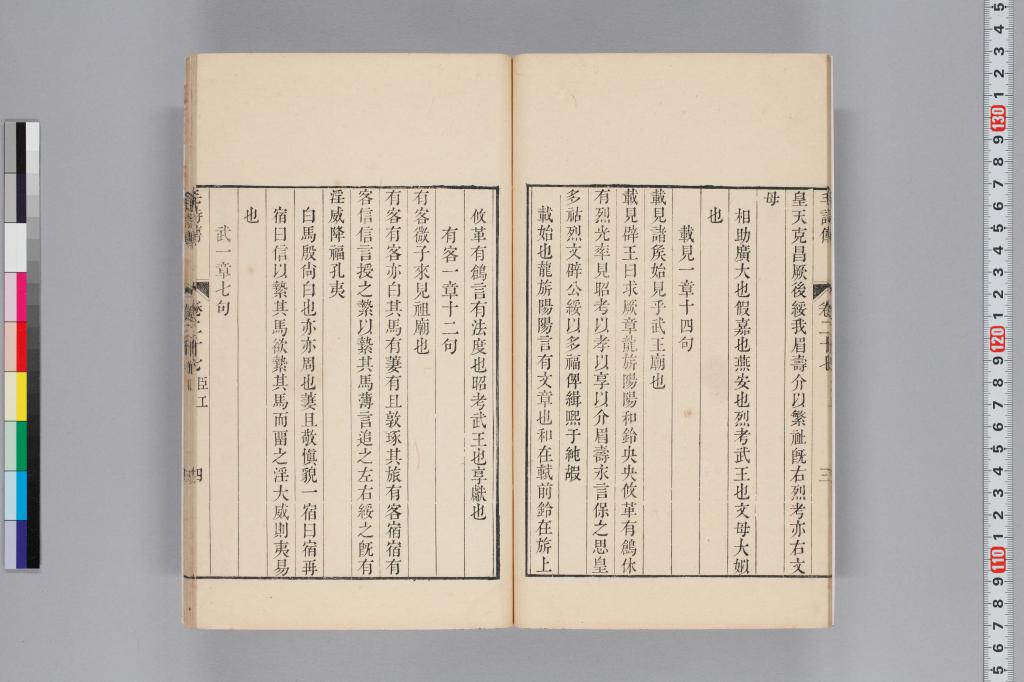 毛詩傳
卷二十七
三
皇天克昌厥後綏我眉壽介以繁祉旣右烈考亦右文
母
相助廣大也假嘉也燕安也烈考武王也文母大姒
也
載見一章十四句
載見諸矦始見乎武王廟也
載見辟王曰求厥章龍旂陽陽和鈴央央攸革有鶬休
有烈光率見昭考以孝以享以介眉壽永言保之思皇
多祜烈文辟公綏以多福俾緝熙于純嘏
載始也龍旂陽陽言有文章也和在軾前鈴在旂上
攸革有鶬言有法度也昭考武王也享獻也
有客一章十二句
有客微子來見祖廟也
有客有客亦白其馬有萋有且敦琢其旅有客宿宿有
客信信言授之縶以縶其馬薄言追之左右綏之旣有
淫威降福孔夷
白馬殷尙白也亦亦周也萋且敬愼貌一宿曰宿再
宿曰信以縶其馬欲縶其馬而畱之淫大威則夷易
也
武一章七句
卷二十七
臣工
四